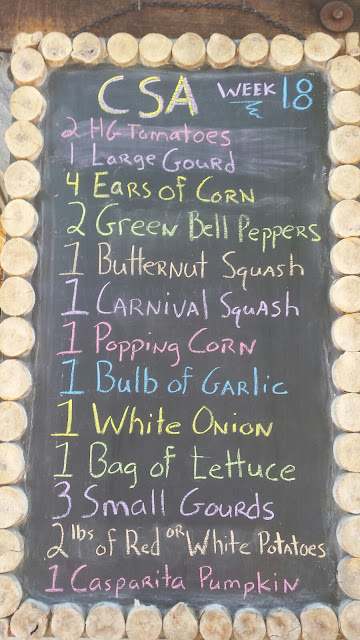 CSA WEEK 18
2 HG Tomatoes
1 Large Gourd
4 Ears of Corn
2 Green Bell Peppers
1 Butternut Squash
1 Carnival Squash
1 Popping Corn
1 Bulb of Garlic
1 White Onion
1 Bag of Lettuce
3 Small Gourds
2 lbs of Red or White Potatoes
1 Casparita Pumpkin